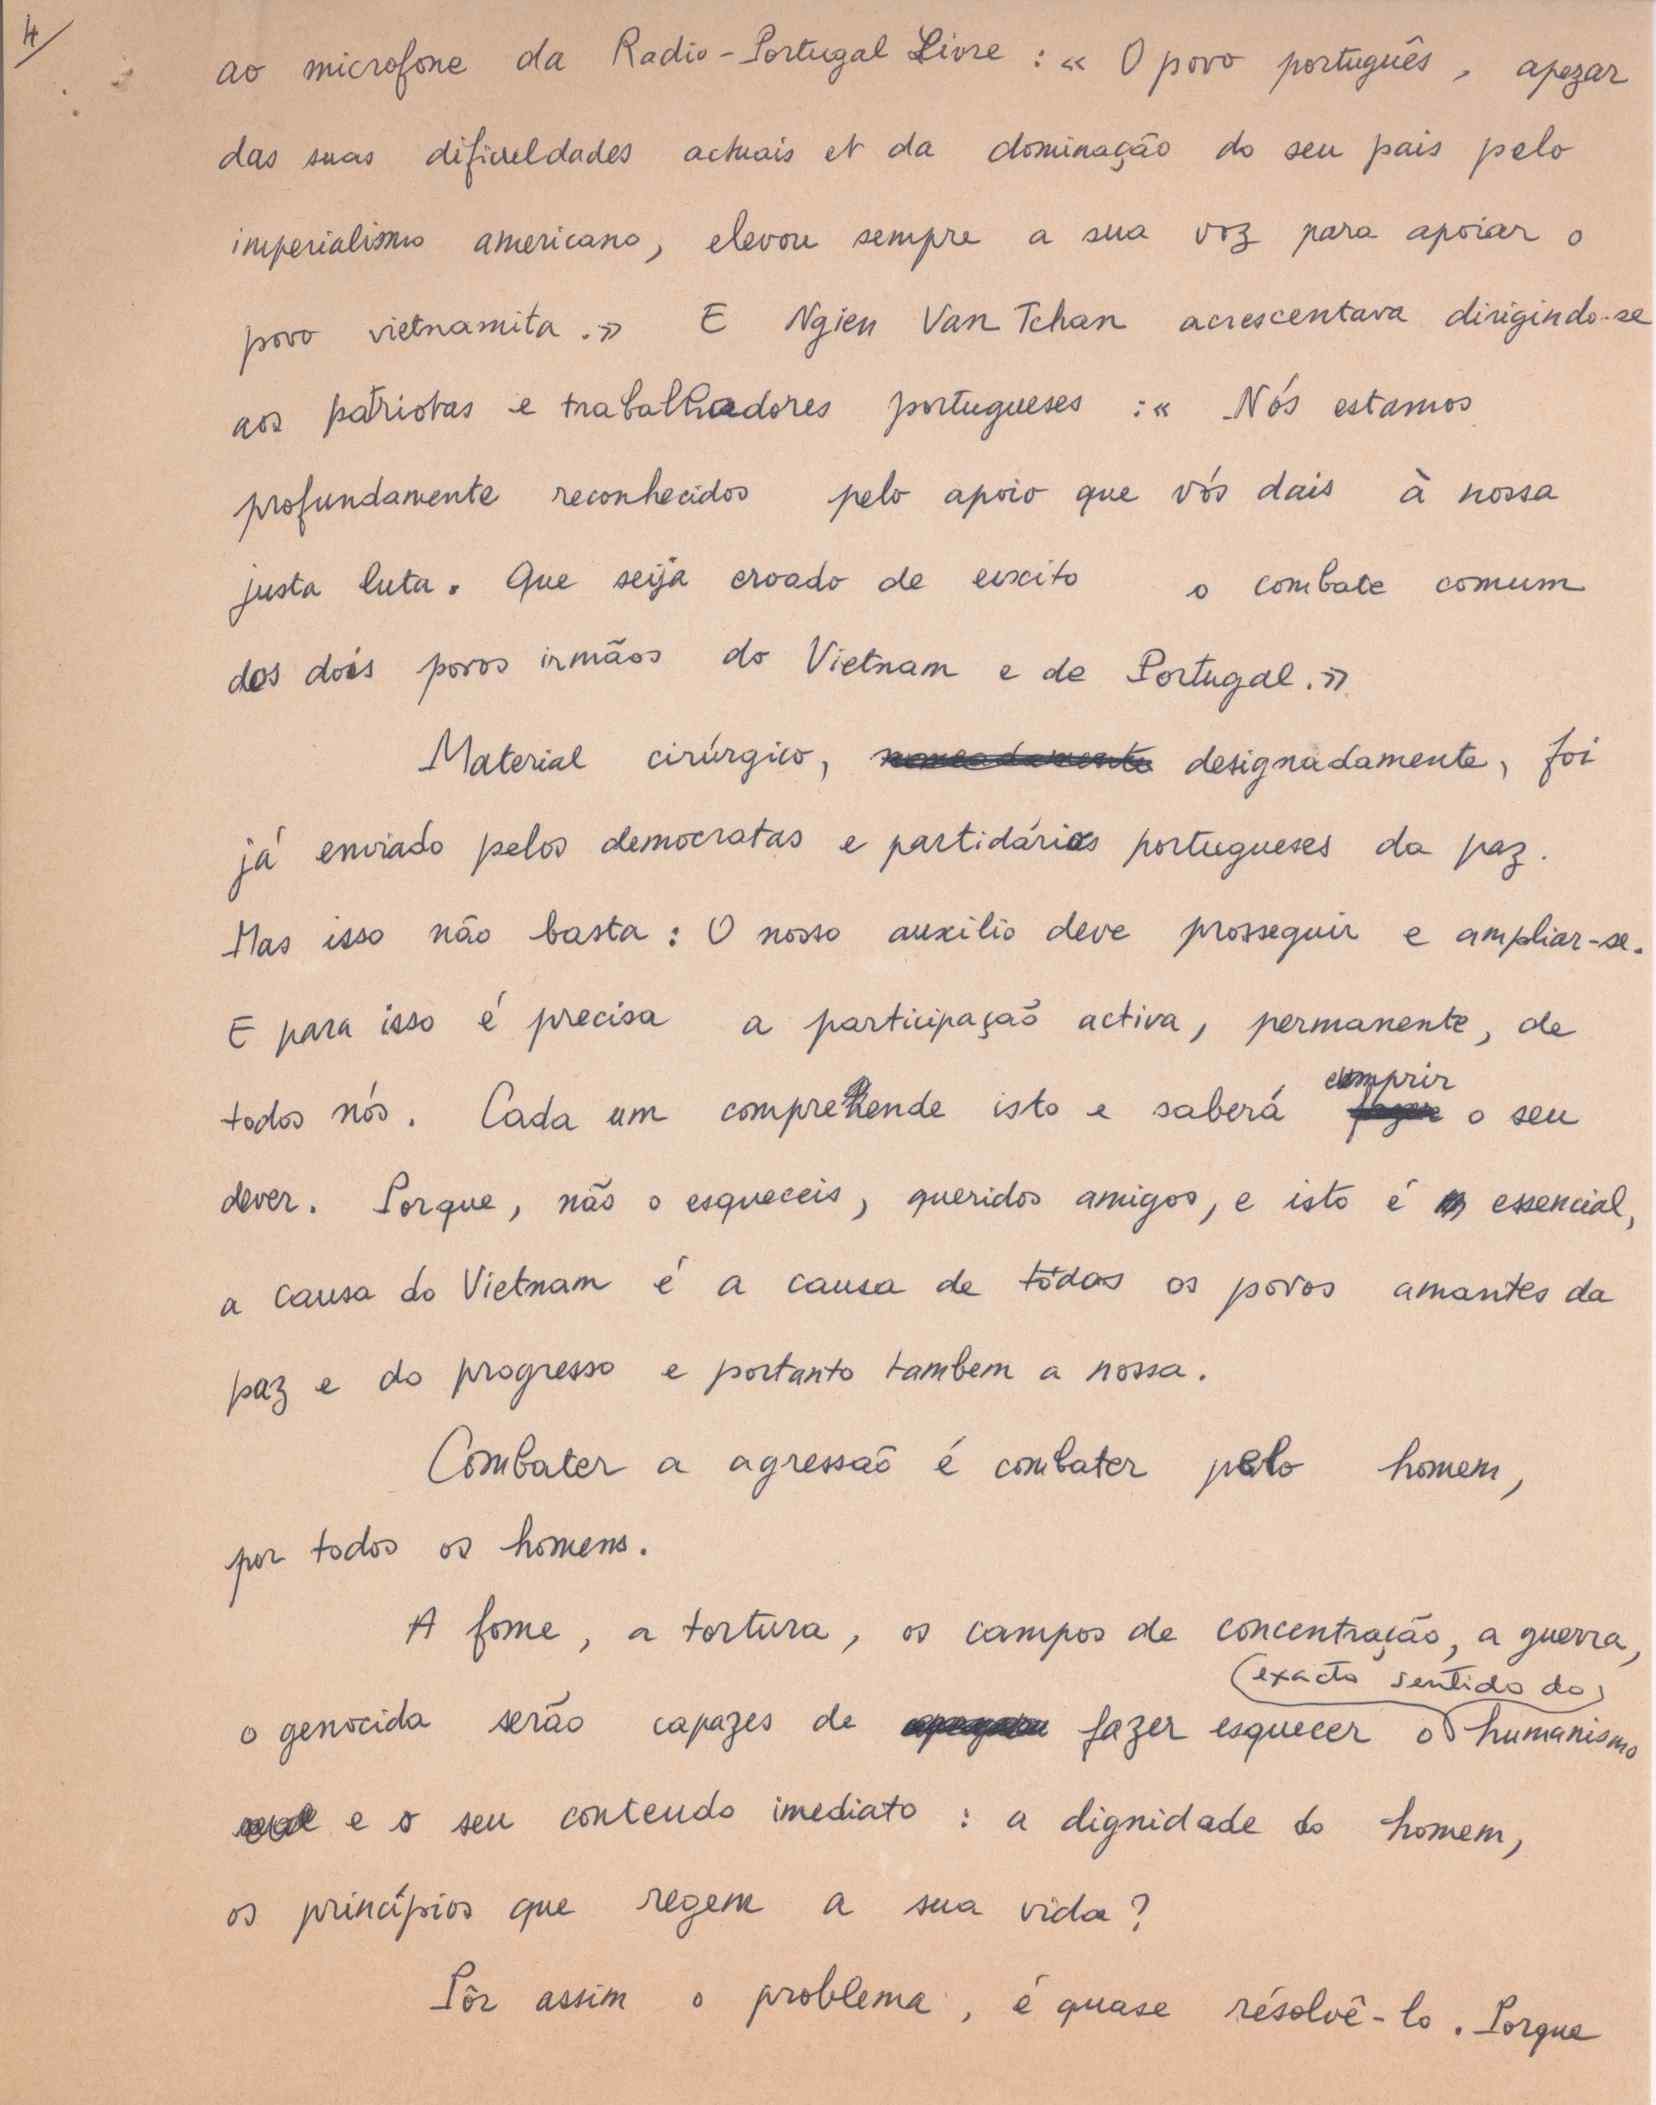 4/
ao microfone da Radio-Portugal Livre : « O povo português, apezar
das suas dificuldades actuais et da dominação do seu pais pelo
imperialismo americano, elevou sempre a sua voz para apoiar o
povo vietnamita.» E Ngien Van Tchan acrescentava dirigindo-se
aos patriotas e trabalhadores portugueses :« Nós estamos
profundamente reconhecidos pelo apoio que vós dais à nossa
justa luta. Que seija croado de euxito o combate comum
dos dois povos irmãos do Vietnam e de Portugal.»
Material cirúrgico, nomeadamente designadamente, foi
já enviado pelos democratas e partidários portugueses da paz.
Mas isso não basta : O nosso auxilio deve prosseguir e ampliar-se.
E para isso é precisa a participação activa, permanente, de
todos nós. Cada um comprehende isto e saberá fazer o seu
cumprir
dever. Porque, não o esqueceis, queridos amigos, e isto é essencial,
a causa do Vietnam é a causa de tôdos os povos amantes da
paz e do progresso e portanto tambem a nossa.
Combater a agressão é combater pelo homem,
por todos os homens.
A fome, a tortura, os campos de concentração, a guerra,
exacto sentido do
o genocida serão capazes de fazer esquecer o humanismo
e o seu conteudo imediato : a dignidade do homem,
os princípios que regem a sua vida ?
Pôr assim o problema, é quase résolvê-lo. Porque